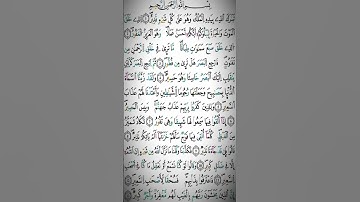 بِسْمِ اللَّهِ الرَّحْمَٰنِ الرَّحِيمِ
تَبَارَكَ الَّذِي بِيَدِهِ الْمُلْكُ وَهُوَ عَلَىٰ كُلِّ شَيْءٍ قَدِيرٌ
وَالْحَيَاةَ لِيَبْلُوَكُمْ أَيُّكُمْ أَحْسَنُ عَمَلًا وَهُوَ الْعَزِيزُ الْغَفُورُ
الَّذِي خَلَقَ سَبْعَ سَمَاوَاتٍ طِبَاقًا مَا تَرَىٰ فِي خَلْقِ الرَّحْمَٰنِ مِنْ
فَارْجِعِ الْبَصَرَ هَلْ تَرَىٰ مِنْ فُطُورٍ ثُمَّ ارْجِعِ الْبَصَرَ
يَنْقَلِبْ إِلَيْكَ الْبَصَرُ خَاسِئًا وَهُوَ حَسِيرٌ وَلَقَدْ زَيَّنَّا
بِمَصَابِيحَ وَجَعَلْنَاهَا رُجُومًا لِلشَّيَاطِينِ وَأَعْتَدْنَا لَهُمْ عَذَابَ
السَّعِيرِ وَلِلَّذِينَ كَفَرُوا بِرَبِّهِمْ عَذَابُ جَهَنَّمَ وَبِئْسَ الْمَصِيرُ
إِذَا أُلْقُوا فِيهَا سَمِعُوا لَهَا شَهِيقًا وَهِيَ تَفُورُ تَكَادُ تَمَيَّزُ
كُلَّمَا أُلْقِيَ فِيهَا فَوْجٌ سَأَلَهُمْ خَزَنَتُهَا أَلَمْ يَأْتِكُمْ نَذِيرٌ
فَكَذَّبْنَا وَقُلْنَا مَا نَزَّلَ اللَّهُ مِنْ شَيْءٍ
إِلَّا فِي ضَلَالٍ كَبِيرٍ وَقَالُوا لَوْ كُنَّا نَسْمَعُ أَوْ نَعْقِلُ مَا كُنَّا فِي أَصْحَابِ
السَّعِيرِ فَاعْتَرَفُوا بِذَنْبِهِمْ فَسُحْقًا لِأَصْحَابِ السَّعِيرِ
إِنَّ الَّذِينَ يَخْشَوْنَ رَبَّهُمْ بِالْغَيْبِ لَهُمْ مَغْفِرَةٌ وَأَجْرٌ كَبِيرٌ